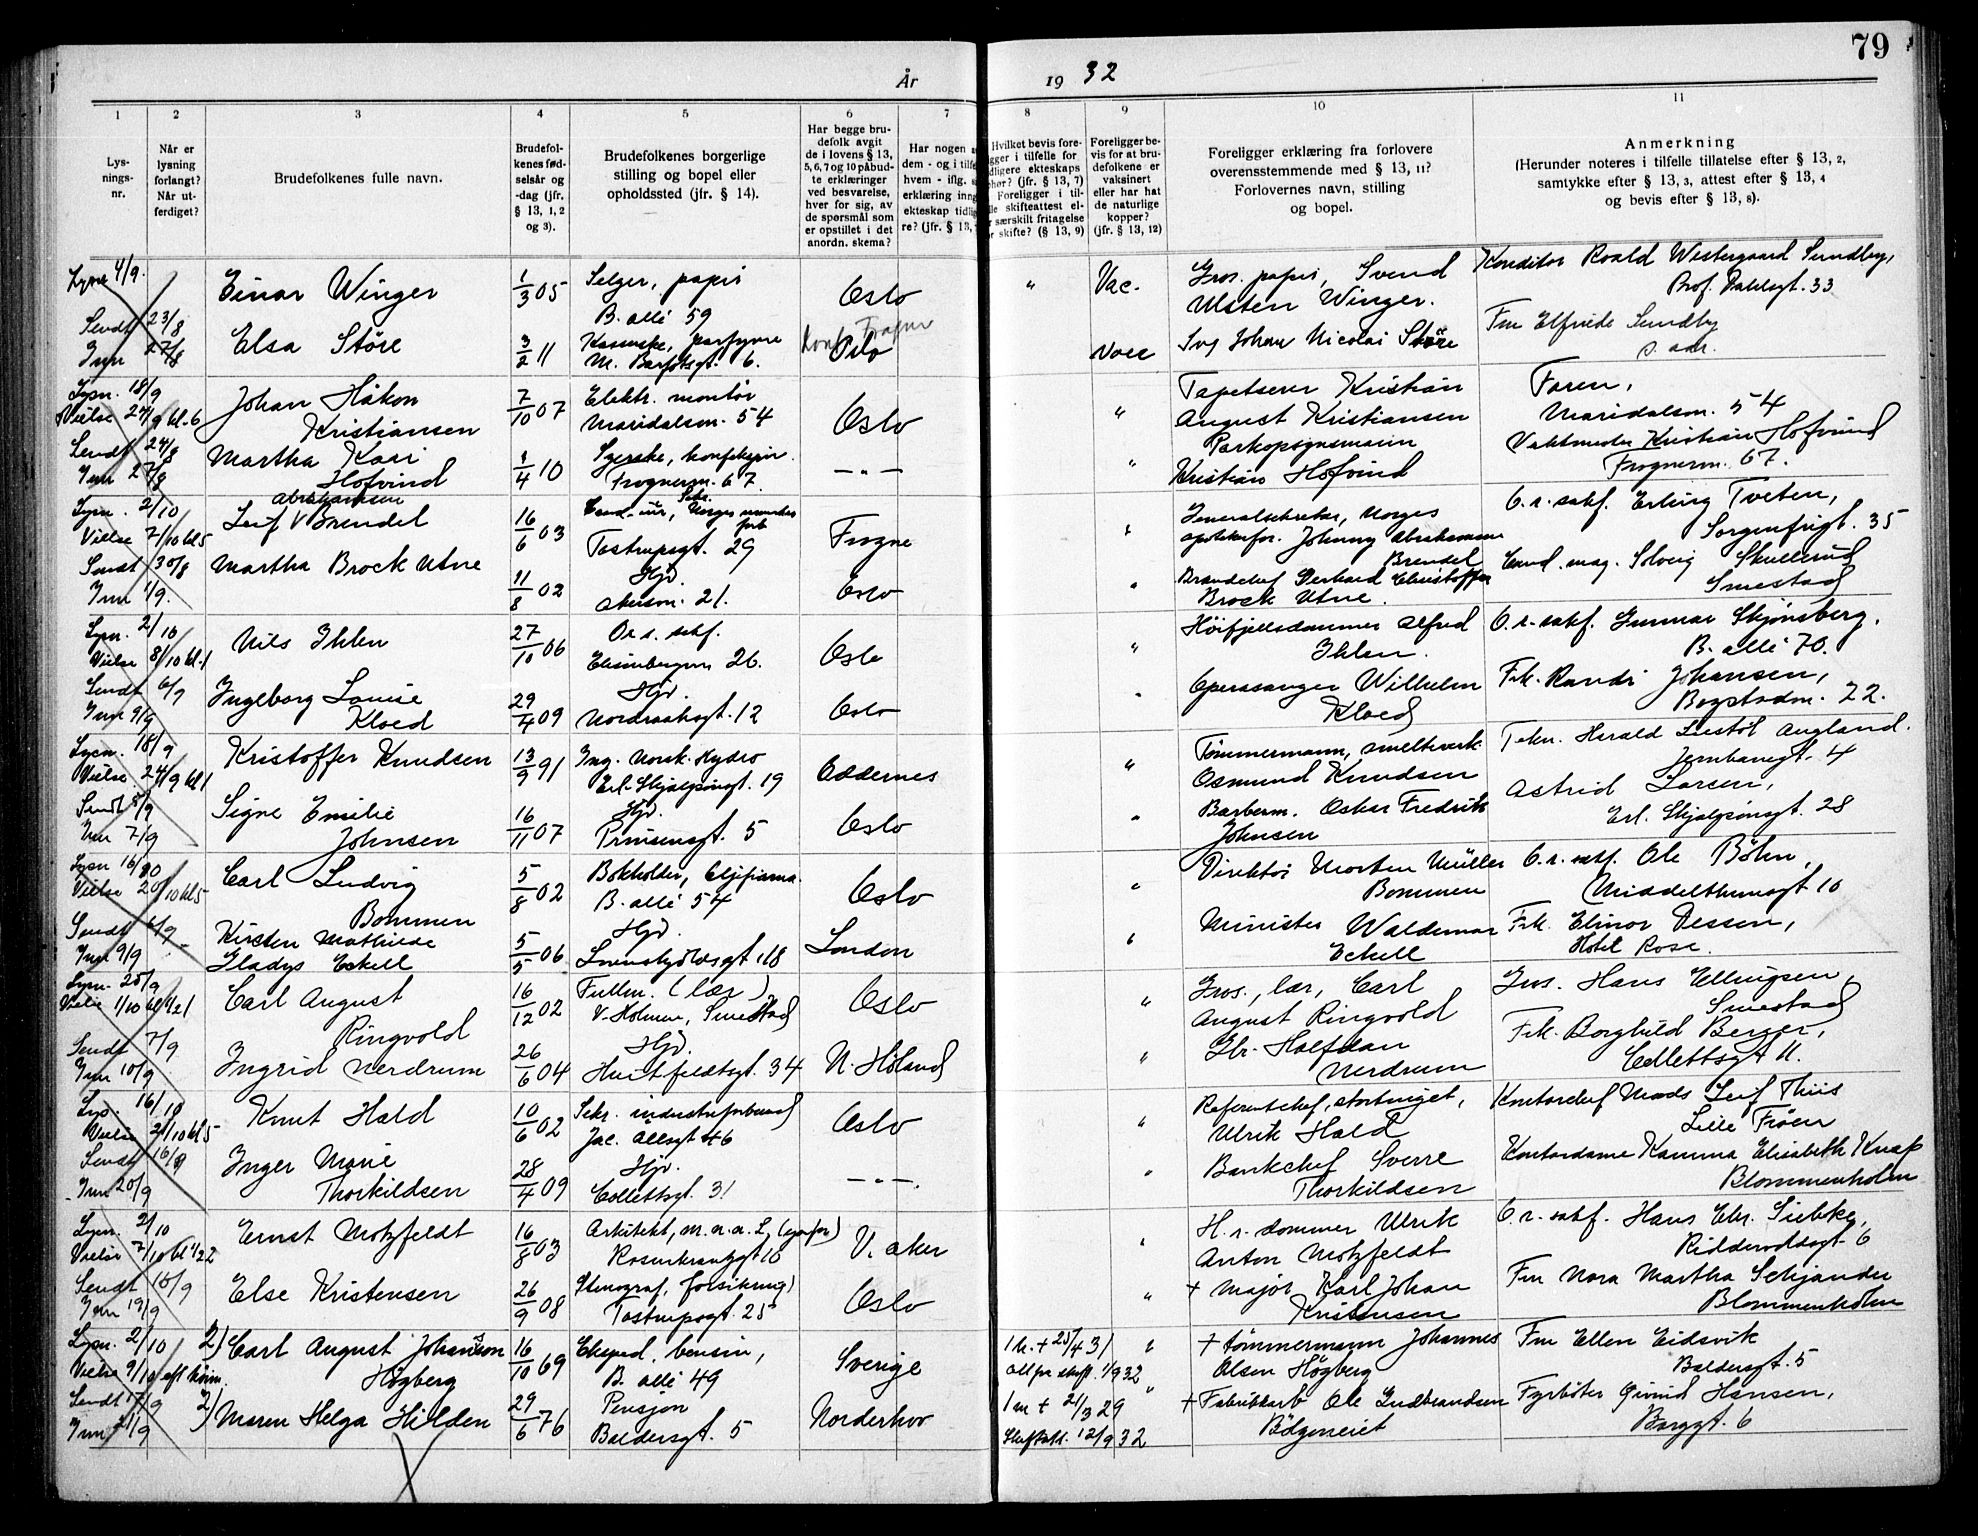 79
År 1932
1 2 3 4 5 6 7 8 9 10 11
Lysningsnr.
Når er lysning forlangt? Når utferdiget?
Brudefolkenes fulle navn.
Brudefolkenes fødselsår og -dag (jfr. § 13, 1, 2 og 3).
Brudefolkenes borgerlige stilling og bopel eller opholdssted (jfr. § 14).
Har begge brudefolk avgit de i lovens § 13, 5, 6, 7 og 10 påbudte erklæringer ved besvarelse, hver for sig, av de spørsmål som er opstillet i det anordn. skema?
Har nogen
dem - og i tilf
hvem - iflg.
erklæring inng
ekteskap tidlig
re? (jfr. § 13,
Hvilket bevis fore-
gger i tilfelle for
dligere ekteskaps
hør? (jfr. § 13, 7)
Foreligger i til-
lle skifteattest el-
r særskilt fritagelse
or skifte? (§ 13, 9)
Foreligger bevis for at brudefolkene er vaksinert eller har hat de naturlige kopper? (jfr. § 13, 12)
Foreligger erklæring fra forlovere overensstemmende med § 13, 11? Forlovernes navn, stilling og bopel.
Anmerkning
(Herunder noteres i tilfelle tillatelse efter § 13, 2, samtykke efter § 13, 3, attest efter § 13, 4 og bevis efter § 13, 8).
Lysn 4/9.
Sendt 23/8
Inn 27/8
Einar Winger 1/3 05 Selger, papir
B. allé 59 Oslo " Vac. Gros. papir, Svend
Ulsten Winger. Konditor Roald Westergaard Sundby,
Prof. Dahlsgt. 33
Elsa Störe 3/2 11 parfyme
M. Barfotsgt. 6. Oslo Frogner Vacc Johan Nicolai Störe Fru Elfride Sundby
s. adr.
Lysn. 18/9
Vielse 24/9 kl. 6
Sendt 24/8
Inn 27/8
Johan Håkon
Kristiansen 7/10 07 Elektr. montör
Maridalsvn. 54 Oslo " Tapetserer Kristian
August Kristiansen Faren,
Maridalsvn. 54
Martha Kari
Hofvind 1/4 10 Syerske, konfeksjon.
Frognervn. 67. - " - " Parkopsynsmann
Kristian Hofvind Vaktmester Kristian Hofvind
Frognervn. 67.
Lysn. 2/10
Vielse 7/10 kl 5
Sendt 30/8
Inn 1/9.
Abrahamsen
Leif V Brendel 16/6 03 Cand. jur., Sekr. Norges
Tostrupsgt. 29 Frogner " Generalsekretær, Norges
apotekerfor. Johnny Abrahamsen
Brendel O.r.sakf. Erling Tveten,
Sorgenfrigt. 35
Martha Brock Utne 11/8 02 Hjd.
Akersvn. 21. Oslo " Brandchef Gerhard Christoffer
Brock Utne. Cand. mag. Solveig Skullerud
Smestad
Lysn. 2/10
Vielse 8/10 kl. 1
Sendt 6/9
Inn 9/9
Nils Ihlen 27/10 06 O.r.s. sakf.
Elisenbergvn 26. Oslo " Höifjellsdommer Alfred
Ihlen. O.r.sakf. Gunnar Skjönsberg,
B. allé 70.
Ingeborg Louise
Kloed 29/4 09 Hjd.
Nordraaksgt. 12 Oslo " Operasanger Wilhelm
Kloed Frk. Randi Johansen,
Bogstadvn. 22.
Lysn. 18/9
Vielse 24/9 kl 1
Sendt 5/9
Inn 7/9
Kristoffer Knudsen 13/9 91 Ing. Norsk Hydro
Erl. Skjalgsönsgt. 19 Oddernes " Tömmermann, smelteverk
Osmund Knudsen Tekn. Herald Liestöl Augland.
Jernbanegt. 4
Signe Emilie
Johnsen 16/11 07 Hjd.
Prinsensgt. 5 Oslo " Barberm. Oskar Fredrik
Johnsen Astrid Larsen,
Erl. Skjalgsönsgt. 28
Lysn 16/10
Vielse 20/10 kl 5
Sendt 6/9.
Inn 9/9
Carl Ludvig
Bommen 5/8 02 Bokholder, oljefirma.
B. allé 54 Oslo " Direktör Morten Müller
Bommen O.r.sakf. Ole Böhn,
Middelthunsgt 10
Kirsten Mathilde
Gladys Eckell 5/5 06 Hjd.
Svenstjoldsgt 118 London " Minister Waldemar
Eckell Frk. Elinor Dessen,
Hotel Rose.
Lysn. 25/9
Vielse 1/10 kl 1/2 1
Sendt 7/9
Inn 10/9
Carl August
Ringvold 16/12 02 Fullm. (lær)
V. Holmen, Smestad Oslo " Gros., lær, Carl
August Ringvold Gros. Hans Ellingsen,
Smestad
Ingrid Nerdrum 26/6 04 Hjd.
Huitfeldtsgt. 34 N. Höland " Gbr. Halfdan
Nerdrum Frk. Borghild Berger,
Collettsgt 11.
Lys. 16/10
Vielse 21/10 kl 5
Sendt 16/9
Inn 20/9
Knut Hald 10/6 02 Sekr. industriforbund
Jac. Aallsgt 46 Oslo " Referentchef, stortinget,
Ulrik Hald Kontorchef Mads Leif Thiis
Lille Fröen
Inger Marie
Thorkildsen 28/4 09 Hjd.
Collettsgt. 31 - " - . " Bankchef Sverre
Thorkildsen Kontordame Kamma Elisabeth Knap
Blommenholm
Lysn. 2/10
Vielse 7/10 kl 1/2 2
Sendt 15/9
Inn 19/9
Ernst Motzfeldt 16/8 03 Arkitekt, m.n.a.l.
Rosenkrantzgt 10 V. Aker " H.r. dommer Ulrik
Anton Motzfeldt O.r.sakf. Hans Chr. Siebke,
Riddervoldsgt 6
Else Kristensen 26/9 08 Stenograf, forsikring)
Tostrupsgt. 25 Oslo " + Major Karl Johan
Kristensen Fru Nora Martha Schjander
Blommenholm
Lysn. 2/10
Vielse 9/10
Sendt 17/9
Inn 21/9
2) Carl August Johansson
Högberg 16/10 69 Eksped. bensin,
B. allé 49 Sverige 1 h. + 25/4 31
Att fra skift. 1/9 32 " + tömmermann Johannes
Olsen Högberg Fru Ellen Eidsvik
Baldersgt. 5
2) Maren Helga Hilden 29/6 76 Pensjon
Baldersgt. 5 Norderhov 1 m + 21/3 29
Skifteatt. 12/9 32 " + Fabrikkarb Ole Gudbrandsen
Bölgeneiet Fyrböter Eivind Hansen,
Borggt. 6